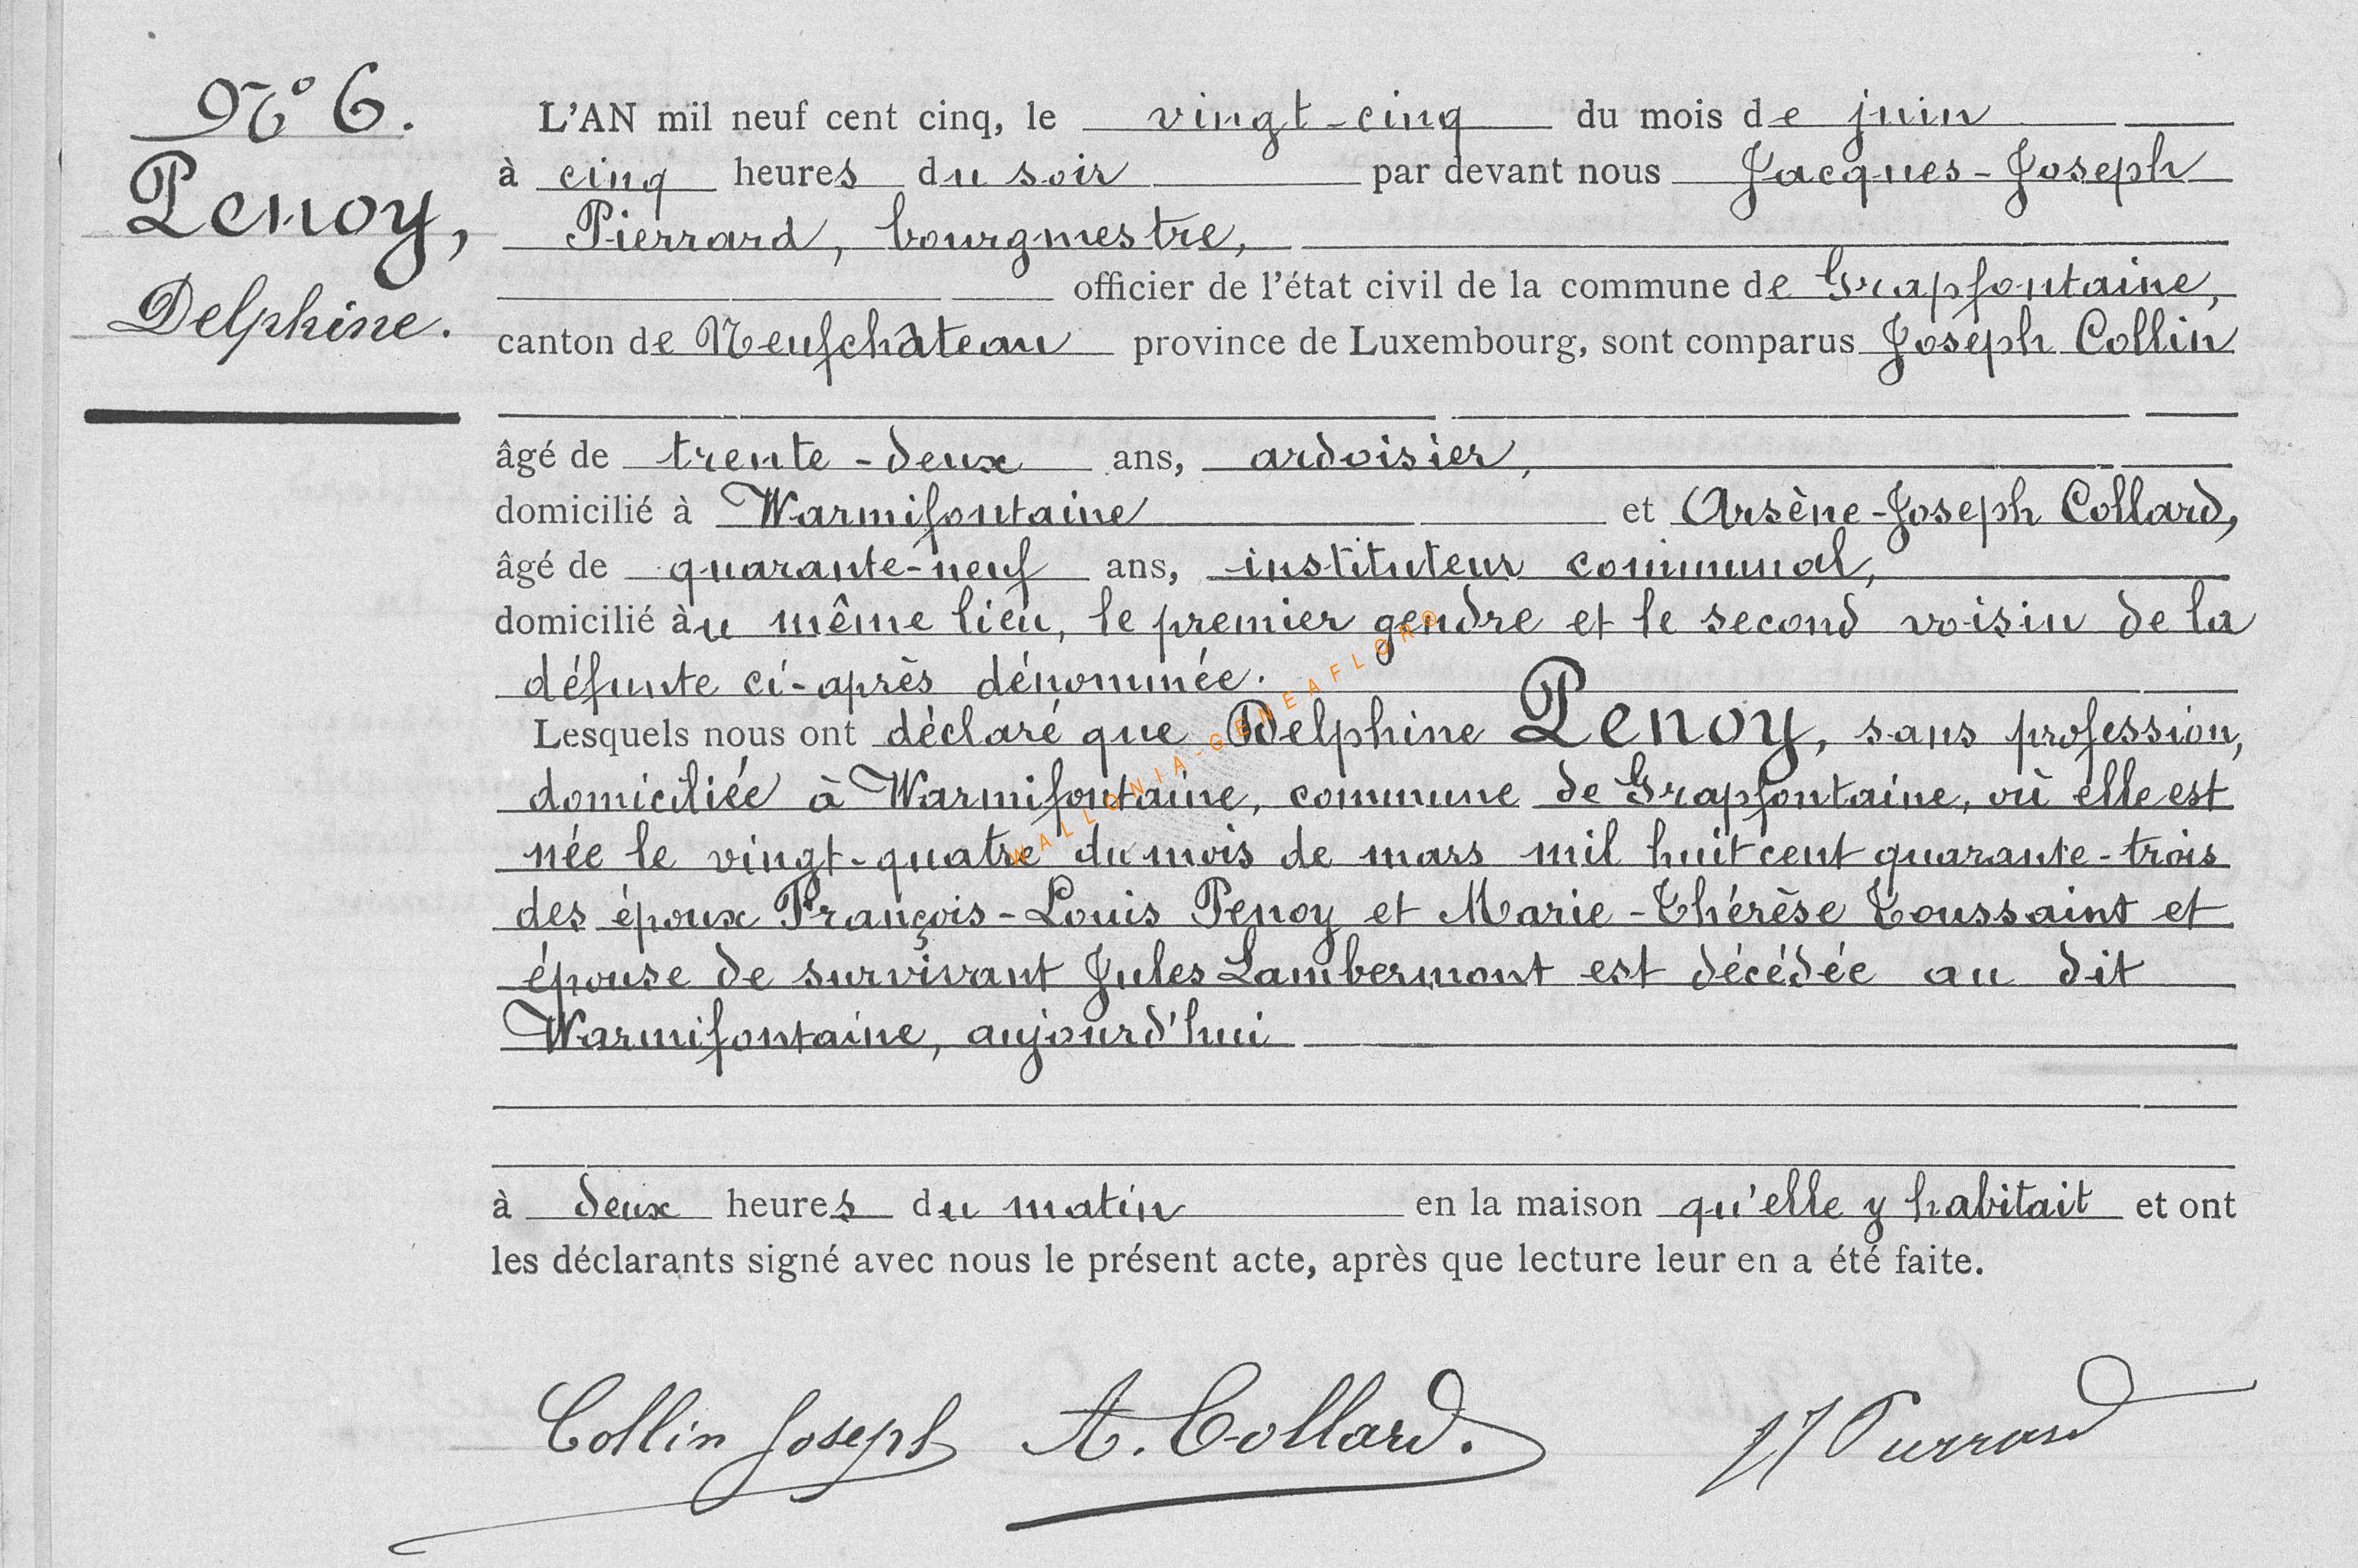 N° 6.
Penoy,
Delphine.
L'AN mil neuf cent cinq, le vingt-cinq du mois de juin
à cinq heures du soir par devant nous Jacques-Joseph
Pierrard, bourgmestre,
officier de l'état civil de la commune de Grapfontaine,
canton de Neufchâteau province de Luxembourg, sont comparus Joseph Collin
âgé de trente-deux ans, ardoisier,
domicilié à Warmifontaine et Arsène-Joseph Collard,
âgé de quarante-neuf ans, instituteur communal,
domicilié àu même lieu, le premier gendre et le second voisin de la
défunte ci-après dénommée.
Lesquels nous ont déclaré que Delphine Penoy, sans profession,
domiciliée à Warmifontaine, commune de Grapfontaine, où elle est
née le vingt-quatre du mois de mars mil huit cent quarante-trois
des époux François-Louis Penoy et Marie-Thérèse Toussaint et
épouse de survivant Jules Lambermont est décédée au dit
Warmifontaine, aujourd'hui
à deux heures du matin en la maison qu'elle y habitait et ont
les déclarants signé avec nous le présent acte, après que lecture leur en a été faite.
Collin Joseph A. Collard. JJ Pierrard
WALLONIA-GENEAFLORO